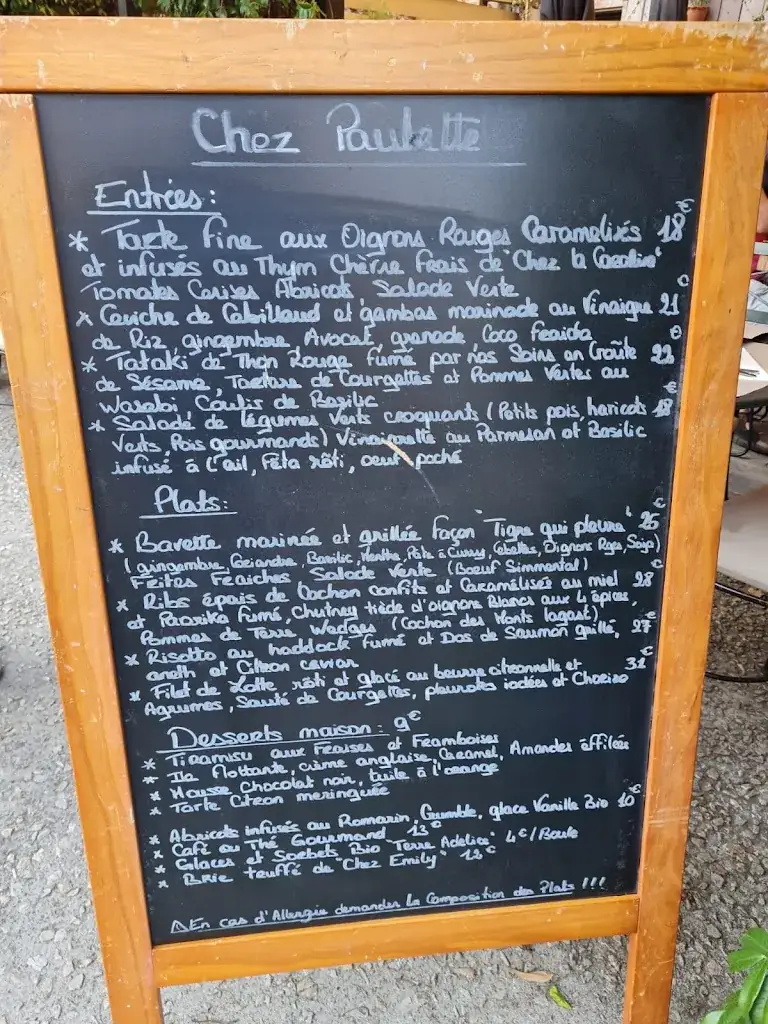 Chez Paulette
Entrées:
* Tarte fine aux Oignons Rouges Caramelisés 18€
et infusés au Thym Chèvre Frais de "Chez la
Tomates Cerises Abricots, Salade Verte
* Ceviche de Cabillaud et gambas marinade au Vinaigre 21€
de Riz, gingembre, Avocat, grenade, Coco Fraiche
* Tataki de Thon Rouge fumé par nos Soins en Croûte 22€
de Sésame, Tartare de Courgettes et Pommes Vertes au
Wasabi Coulis de Basilic
* Salade de légumes Verts croquants (Petits pois, haricots 18€
Verts, Pois gourmands) Vinaigrette au Parmesan et Basilic
infusé à l'ail, Féta rôti, oeuf poché
Plats:
* Bavette marinée et grillée façon "Tigre qui pleure" 25€
(gingembre, Coriandre, Basilic, Menthe, Pâte à Curry, Cebettes, Oignons Rges, Soja)
Frites Fraiches Salade Verte (Boeuf Simmental)
* Ribs épais de Cochon confits et Caramélisés au miel 28€
et Paprika fumé, Chutney tiède d'oignons Blancs aux 4 épices,
Pommes de Terre Wedges (Cochon des Monts Lagast)
* Risotto au haddock fumé et Dos de Saumon grillé, 27€
aneth et Citron caviar
* Filet de Lotte rôti et glacé au beurre citronnelle et 31€
Agrumes, Sauté de Courgettes, pleurotes iodées et Chorizo
Desserts maison: 9€
* Tiramisu aux Fraises et Framboises
* Ile flottante, crème anglaise, Caramel, Amandes éffilées
* Mousse Chocolat noir, tuile à l'orange
* Tarte Citron meringuée
* Abricots infusés au Romarin, Crumble, glace Vanille Bio 10€
* Café ou Thé Gourmand 13€
* Glaces et Sorbets Bio "Terre Adélice" 4€/Boule
* Brie truffé de "Chez Emily" 12€
⚠En cas d'Allergie demander La Composition des Plats !!!